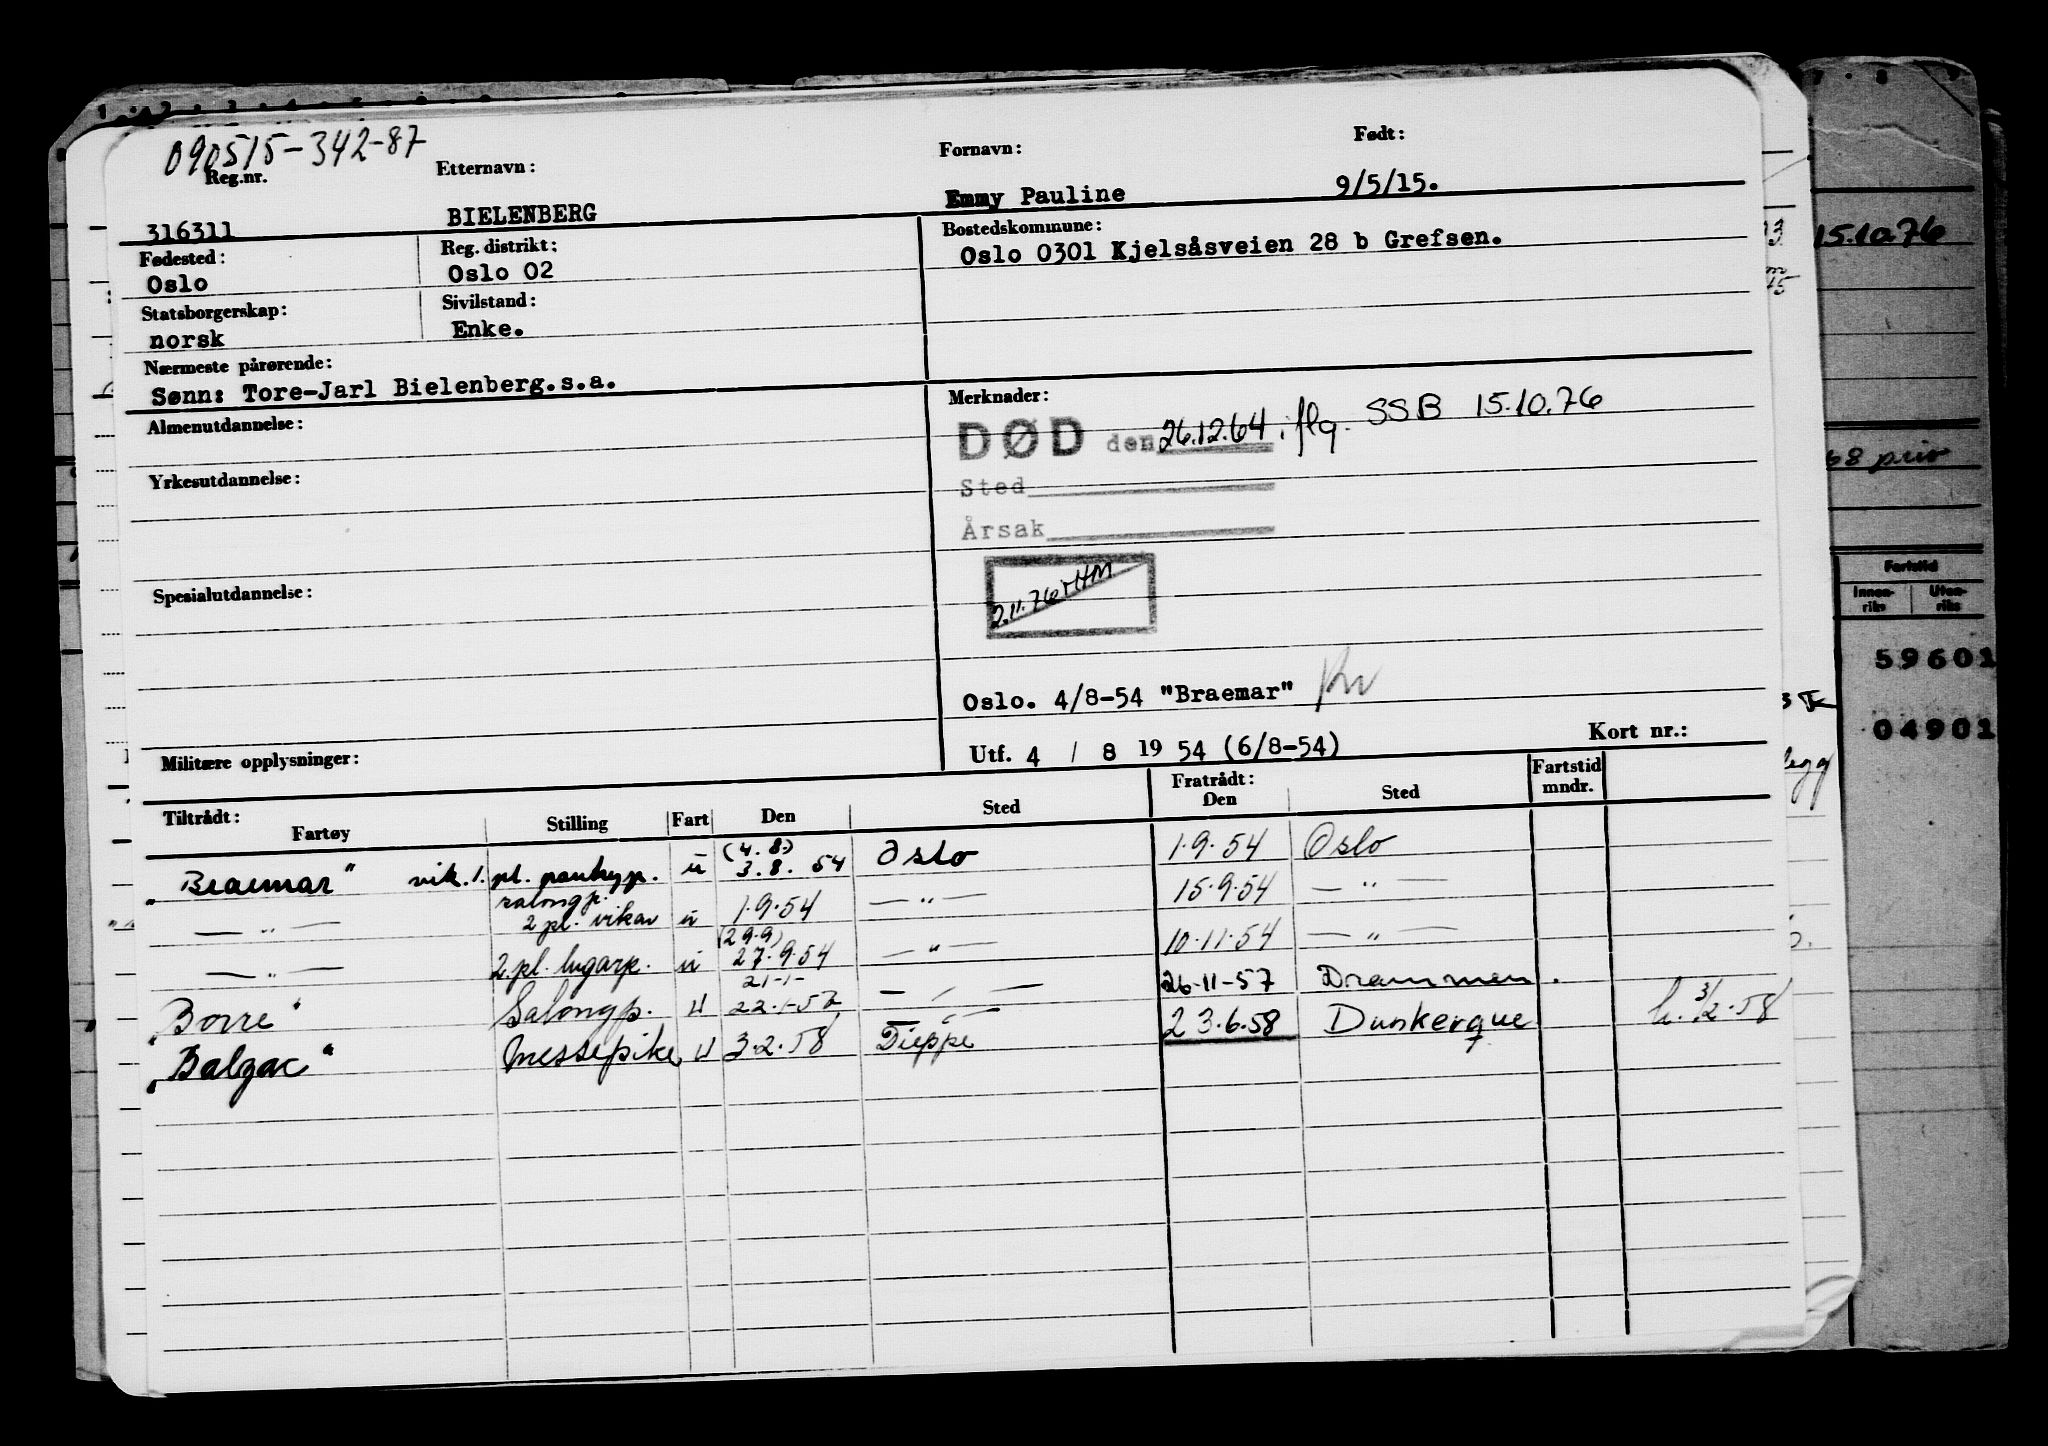 090515-342-87
Reg.nr. Etternavn: Fornavn: Født:
316311 BIELENBERG Emmy Pauline 9/5/15.
Fødested: Reg. distrikt: Bostedskommune:
Oslo Oslo 02 Oslo 0301 Kjelsåsveien 28 b Grefsen.
Statsborgerskap: Sivilstand:
norsk Enke.
Nærmeste pårørende:
Sønn: Tore-Jarl Bielenberg.s.a.
Almenutdannelse: Merknader:
DØD den 26.12.64 iflg. SSB 15.10.76
Yrkesutdannelse: Sted
Årsak
Spesialutdannelse: 2.11.76 HM
Oslo. 4/8-54 "Braemar"
Militære opplysninger: Utf. 4 / 8 19 54 (6/8-54) Kort nr.:
Tiltrådt: Fratrådt: Fartstid
Fartøy Stilling Fart Den Sted Den Sted mndr.
(4.8.)
"Braemar" vik. 1. pl. pantryp. u 3.8.54 Oslo 1.9.54 Oslo
salongp.
— " — 2 pl. vikar u 1.9.54 — " — 15.9.54 — " —
(29.9)
— " — 2.pl. lugarp. u 27.9.54 — " — 10.11.54 — " —
21-1-
"Borre" Salongp. u 22.1-57 — " — 26-11-57 Drammen.
"Balzac" Messepike u 3.2.58 Dieppe 23.6.58 Dunkerque h. 3/2.58
15.10.76
68 priv
Fartstid
Innen-riks Uten-riks
59601
04901
legg